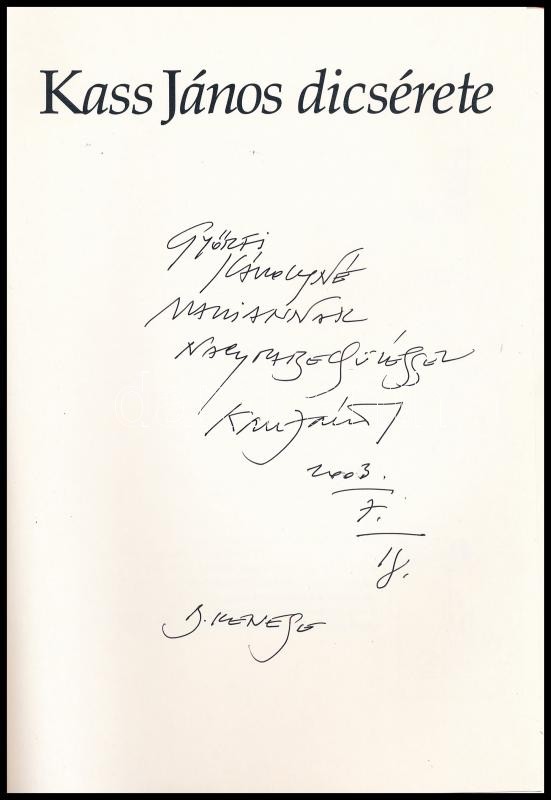 Kass János dicsérete
Győrfi
Károlyné
Mariannak
Nagyrabecsüléssel
Kass János
2003.
7.
18.
B. KENESE